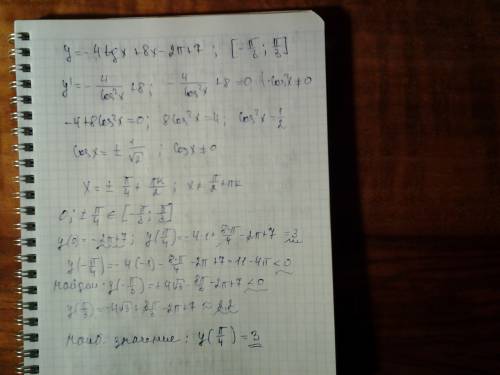 y = -4tgx + 8x - 2π + 7 ; [-π/3 ; π/3]
y' = -4/cos²x + 8 ; -4/cos²x + 8 = 0 | · cos²x ≠ 0
-4 + 8cos²x = 0 ; 8cos²x = 4 ; cos²x = 1/2
cosx = ± 1/√2 ; cosx ≠ 0
x = ± π/4 + πk/2 ; x ≠ π/2 + πk
0; ± π/4 ∈ [-π/3 ; π/3]
y(0) = -2π + 7 ; y(π/4) = -4·1 + 8·π/4 - 2π + 7 = 3
y(-π/4) = -4(-1) - 8·π/4 - 2π + 7 = 11 - 4π < 0
y(-π/3) = +4√3 - 8π/3 - 2π + 7 < 0
y(π/3) = -4√3 + 8π/3 - 2π + 7 ≈
Наиб. значение : y(π/4) = 3